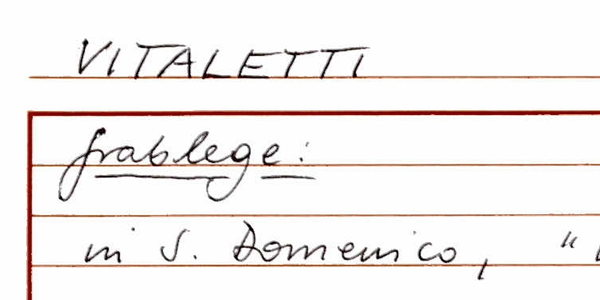 VITALETTI
Grablege:
in S. Domenico, "